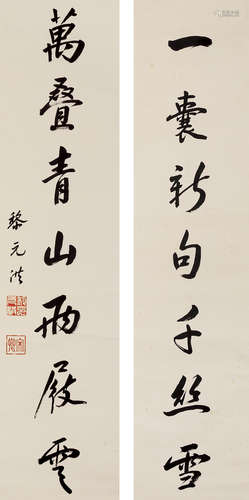 一囊新句千丝雪
萬叠青山兩屐雲
黎元洪